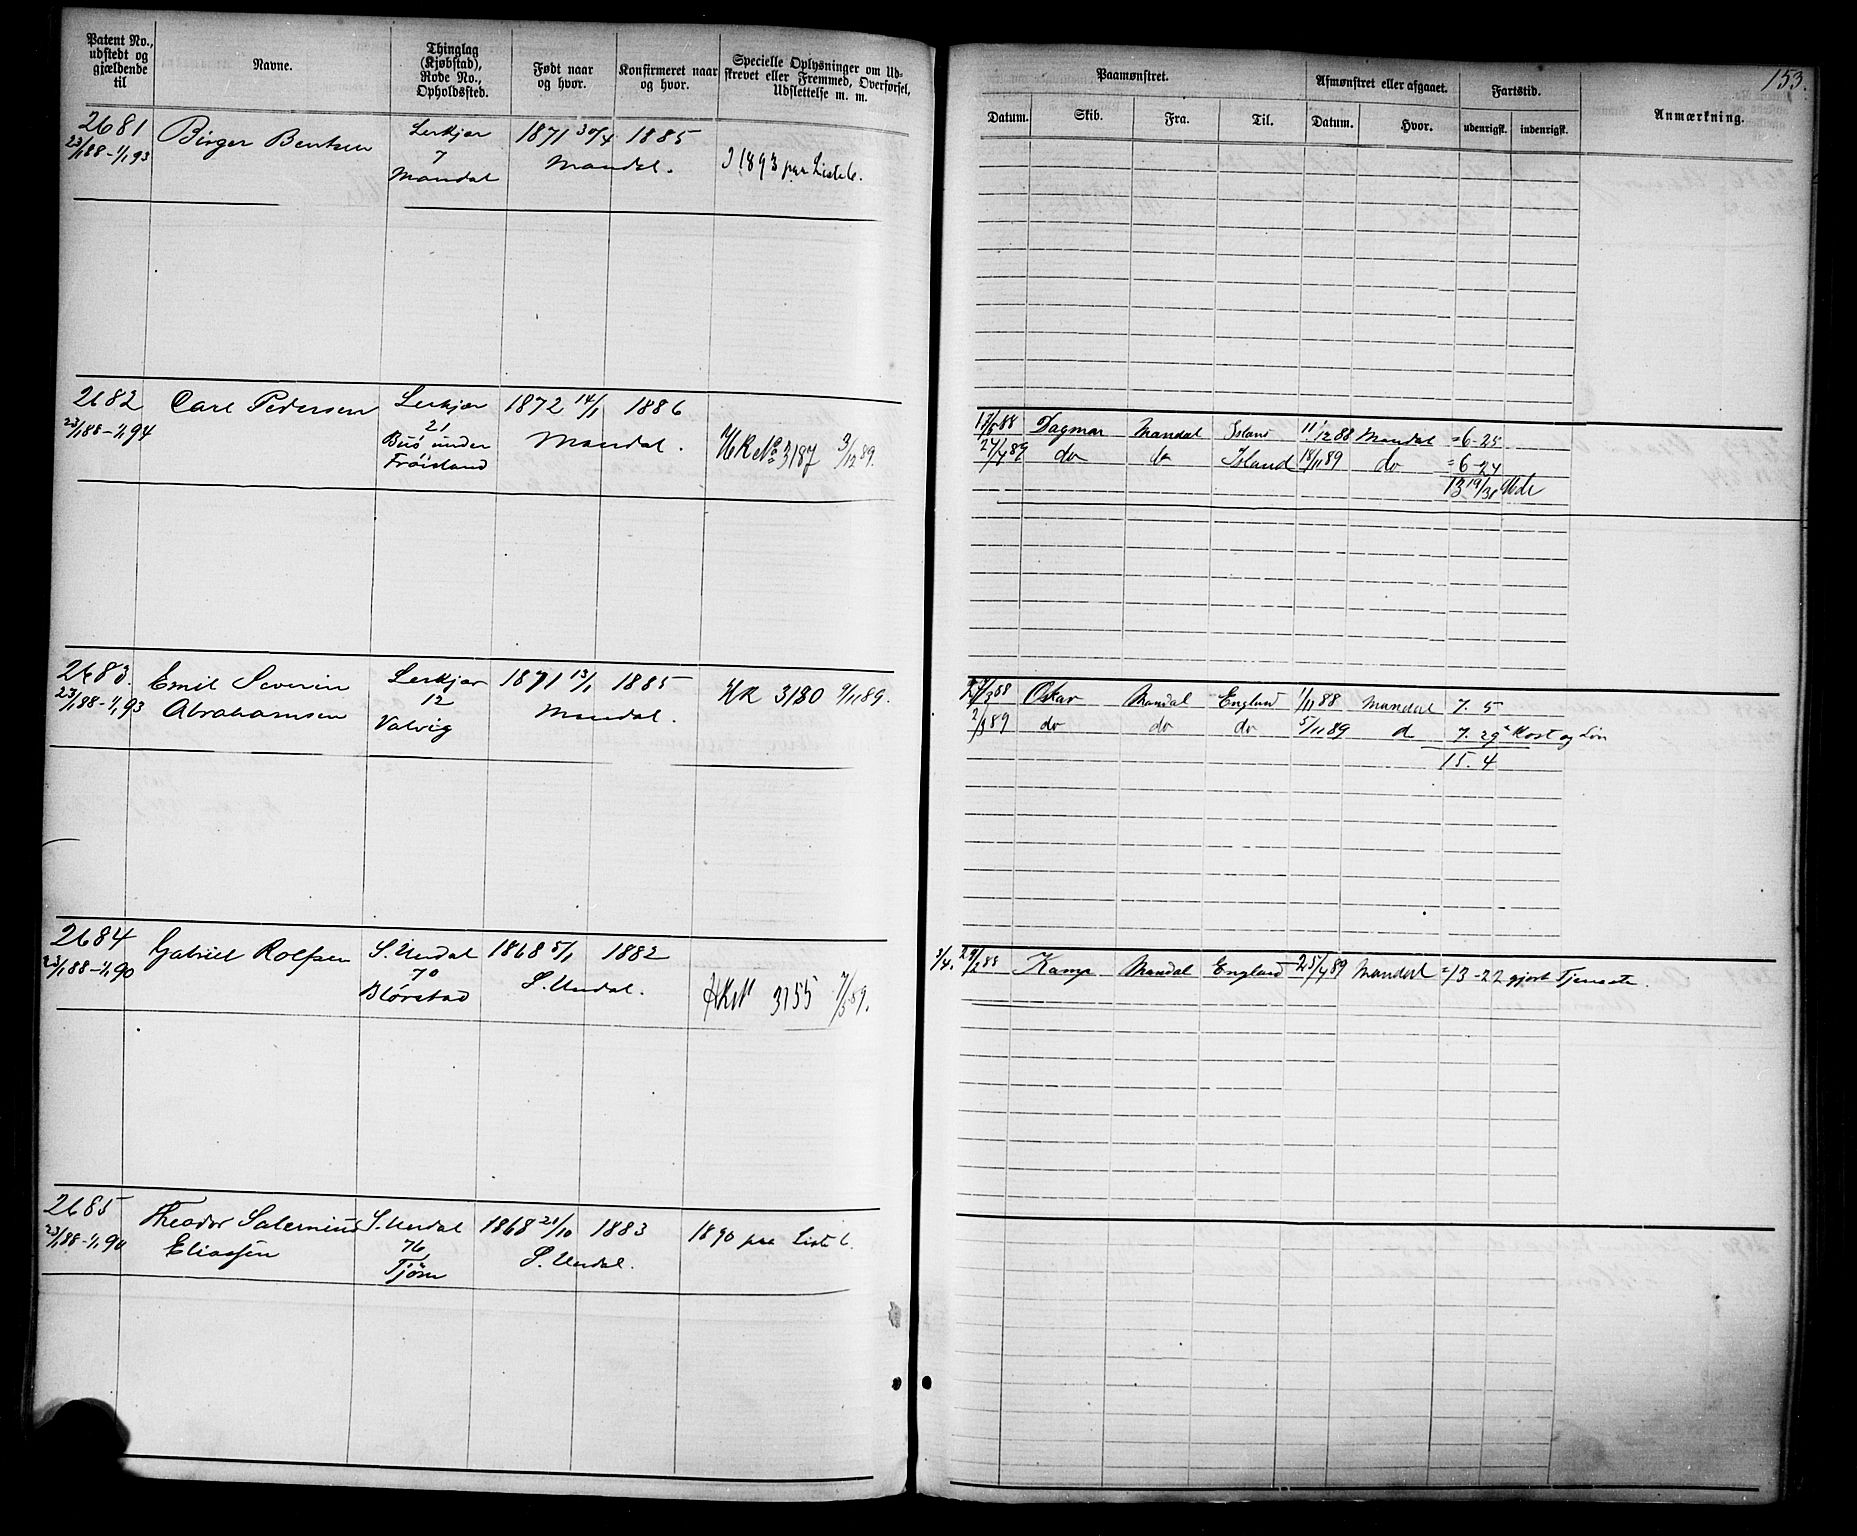 Patent No.,
udstedt og
gjældende
til
Navne.
Thinglag
(Kjøbstad),
Rode No.,
Opholdssted.
Født naar
og hvor.
Konfirmeret naar
og hvor.
Specielle Oplysninger om Ud-
skrevet eller Fremmed, Overførsel,
Udslettelse m. m.
2681
23/1 88 - 1/1 93
Birger Bentsen
7
Mandal
1871 30/4 1885
Mandal.
I 1893 paa Liste 6.
2682
23/1 88 - 1/1 94
Carl Pedersen
21
Frøisland
1872 14/1 1886
Mandal.
HR No 3187 3/12 89.
2683.
23/1 88 - 1/1 93
Emil Severin
Abrahamsen
12
Valvig
1871 13/1 1885
Mandal.
HR 3180 9/11 89.
2684
23/1 88 - 1/1 90
Gabriel Rolfsen
S. Undal
70
1868 5/1 1882
S. Undal.
3155
2685
23/1 88 - 1/1 90
Theodor Salemius
Eliassen
S. Undal
76
Tjøm
1868 21/10 1883
S. Undal.
1890 paa Liste 6.
153.
Paamønstret.
Afmønstret eller afgaaet.
Fartstid.
Anmærkning.
Datum.
Skib.
Fra.
Til.
Datum.
Hvor.
udenrigsk.
indenrigsk.
Dagmar Mandal Island 11/12 88 Mandal = 6 - 25
do Island 18/11 89 do = 6 - 24
13 19/30
Oskar Mandal England 1/11 88 Mandal 7. 5
2/3 89 do do do 5/11 89 d 7. 29 Kost og Løn
15. 4
Kamp Mandal England 25/4 89 Mandal = 13 - 22 gjort Tjeneste.